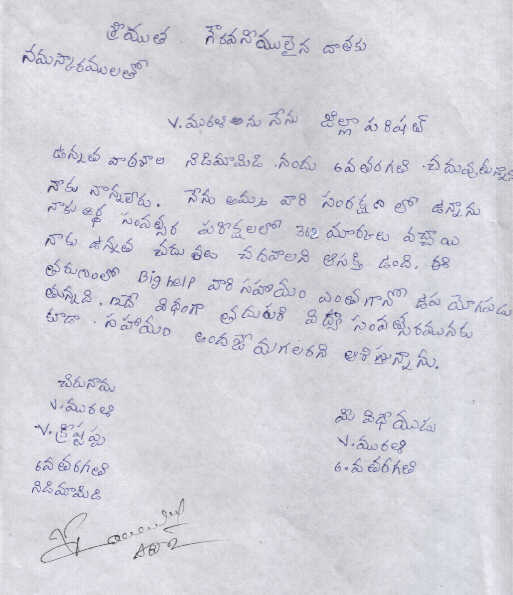 శ్రీయుత గౌరవనీయులైన దాతకు
నమస్కారములతో
V. మురళి అను నేను జిల్లా పరిషత్
ఉన్నత పాఠశాల నిడిమామిడి నందు 6వ తరగతి చదువుతున్నాను
నాకు నాన్నలేరు. నేను అమ్మ వారి సంరక్షణ లో ఉన్నాను
నాకు అర్ధ సంవత్సర పరీక్షలలో 362 మార్కులు వచ్చాయి
నాకు ఉన్నత చదువులు చదవాలని ఆసక్తి ఉంది. ఈ
తరుణంలో Big help వారి సహాయం ఎంతగానో ఉపయోగపడు
తున్నది. ఇదే విధంగా తదుపరి విద్యా సంవత్సరమునకు
కూడా సహాయం అందజేయగలరని ఆశిస్తున్నాను.
చిరునామ
V. మురళి
V. క్రిష్టప్ప
6వ తరగతి
నిడిమామిడి
మీ విధేయుడు
V. మురళి
6. వ తరగతి